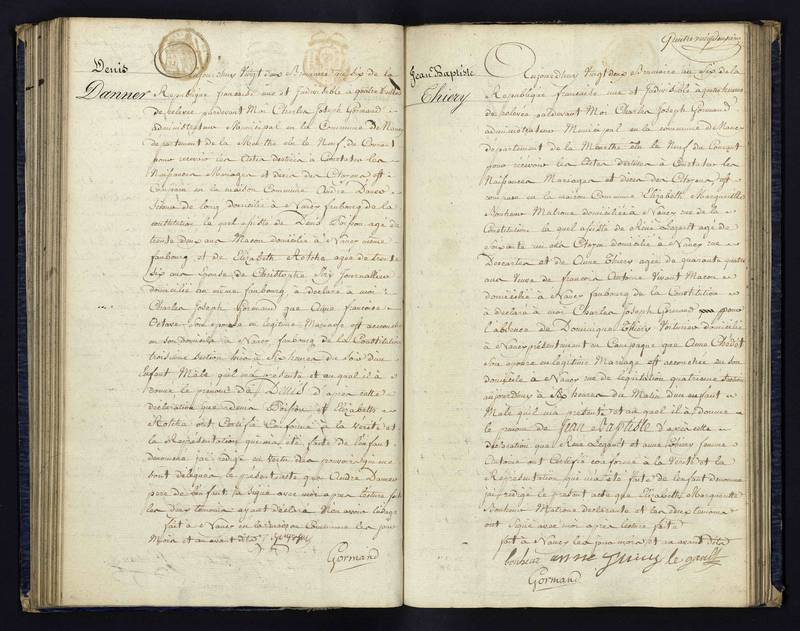 Denis
Danner
aujourd'huy Vingt deux Brumaire an Six de la
Republique française une et Indivisible à quatre heures
de relevée pardevant Moi Charles Joseph Gormand
administrateur Municipal en la Commune de Nancy
departement de la Meurthe élu le Neuf du Courant
pour recevoir les Actes destinés à Constater les
Naissances Mariages et décès des Citoyens est
Comparu en la maison Commune André Danner
de long domicilié à Nancy faubourg de la
constitution le quel assisté de Denis Poisson agé de
trente deux ans Macon domicilié à Nancy même
faubourg et de Elizabeth Rotcha agée de trente
Six ans Epouse de Christophe Journallier
domicilié au même faubourg à déclaré à moi
Charles Joseph Gormand que Anne françoise
Octave Son epouse en légitime Mariage est accouchée
en son domicile à Nancy faubourg de la Constitution
troisieme Section hier à Six heures du Soir d'un
Enfant Mâle qu'il m'a presenté et au quel il a
donné le prenom de Denis d'après cette
déclaration que Denis Poisson et Elizabeth
Rotcha ont Certifié Conforme à la Verité et
la Représentation qui m'a été faite de l'enfant
denommé j'ai rédigé en vertu des pouvoirs qui me
sont délégués le présent acte que André Danner
pere de l'enfant a Signé avec moi apres lecture faite
les deux témoins ayant déclaré N'en avoir l'usage
fait à Nancy en la maison Commune les jour
Mois et an avant dits
Gormand
Jean Baptiste
Thiery
Aujourd'huy Vingt deux Brumaire an Six de la
Republique française une et Indivisible à quatre heures
de relevée pardevant Moi Charles Joseph Gormand
administrateur Municipal en la commune de Nancy
departement de la Meurthe élu le Neuf du Courant
pour recevoir les Actes destinés à Constater les
Naissances Mariages et décès des Citoyens est
comparu en la maison Commune Elizabeth Marguerite
Bonheur Matrone domiciliée à Nancy rue de la
Constitution la quel assistée de René Legault agé de
Soixante un ans Citoyen domicilié à Nancy rue
Descartes et de Anne Thiery agée de quarante quatre
ans Veuve de françois Antoine Vivant Macon
domiciliée à Nancy faubourg de la Constitution
à déclaré à moi Charles Joseph Gormand pour
l'absence de Dominique Thiery Voiturier domicilié
à Nancy présentement en Campagne que Anne
Son epouse en légitime Mariage est accouchée en son
domicile à Nancy rue de législation quatrieme Section
aujourd'huy à Six heures du Matin d'un enfant
Male qu'il m'a presenté et au quel il a donné
le prenom de Jean Baptiste d'après cette
déclaration que René Legault et Anne Thiery femme
Antoine ont Certifié conforme à la Verité et la
Représentation qui m'a été faite de l'enfant denommé
j'ai rédigé le présent acte que Elizabeth Marguerite
Bonheur Matrone declarante et les deux témoins
ont Signé avec moi après lecture faite
fait à Nancy les jour mois et an avant dits
bonheur anne Thiery le gault
Gormand